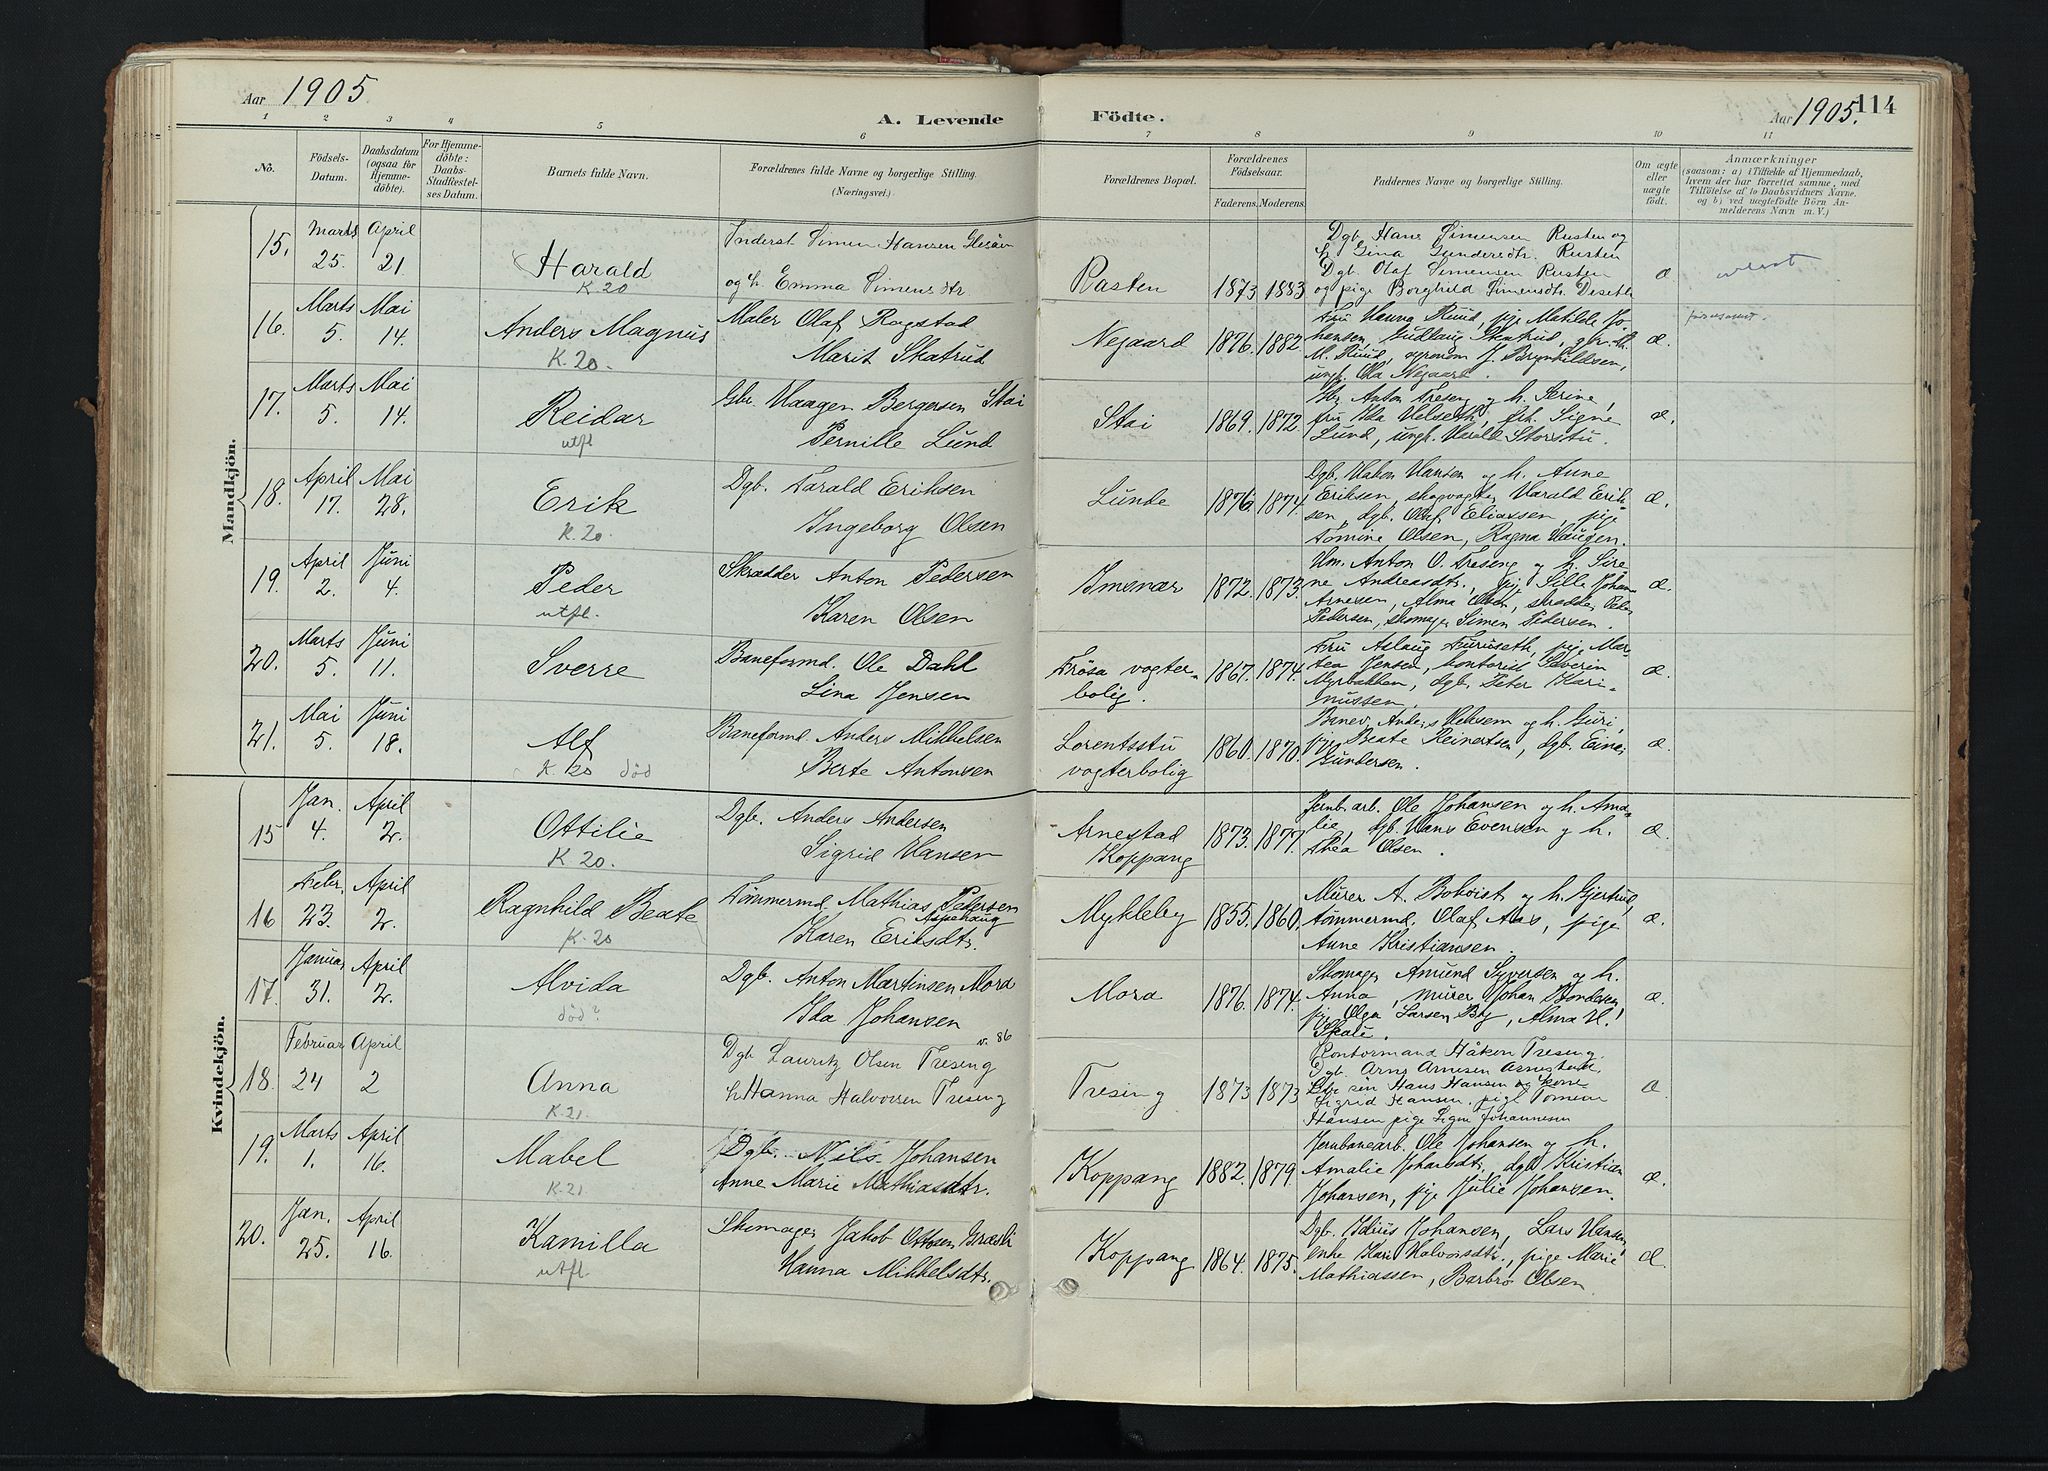 Aar 1905
A. Levende Födte.
Aar 1905. 114
1 2 3 4 5 6 7 8 9 10 11
No.
Födsels-
Datum.
Daabsdatum
(ogsaa for
Hjemme-
döbte).
For Hjemme-
döbte:
Daabs-
Stadfæstel-
ses Datum.
Barnets fulde Navn.
Forældrenes fulde Navne og borgerlige Stilling.
(Næringsvei.)
Forældrenes Bopæl.
Forældrenes
Födselsaar.
Faderens. Moderens.
Faddernes Navne og borgerlige Stilling.
Om ægte
eller
uægte
födt.
Anmærkninger
(saasom: a) i Tilfælde af Hjemmedaab,
hvem der har forrettet samme, med
Tilföielse af to Daabsvidners Navne.
og b) ved uægtefödte Börn An-
melderens Navn m. V.)
Mandkjön.
15. Marts 25. April 21. Harald
K. 20
Inderst Simen Hansen
og h. Emma Simensdtr
Rasten 1873 1883
Dgb. Hans Simensen Rusten og
h. Gina Gundersdtr. Rusten
Dgb. Olaf Simensen Rusten
og pige Borghild Simensdtr Deseth
16. Marts 5. Mai 14. Anders Magnus
K. 20.
Maler Olaf Rogstad
Marit Skatrud
Negaard 1876. 1882. æ.
Fru Hanna Ruud, pige Matilde Jo-
hansen, Gudlaug Skatrud,
M. Ruud, agronom J. Brynhildsen,
ungk. Ola Negaard.
17. Marts 5. Mai 14. Reidar
utfl.
Gbr. Haagen Bergersen Stai
Pernille Lund
Stai 1869. 1872. æ.
Anton Treseng og h. Serine,
fru Ida Velseth, frk. Signe
Lund, ungk. Harald Storstu.
18. April 17. Mai 28. Erik
K. 20.
Dgb. Harald Eriksen
Ingeborg Olsen
Lunde 1876. 1874. æ.
Dgb. Hakon Hansen og h. Anne
Eriksen, skogvogter Harald Erik-
sen, dgb. Olaf Eliassen, pige
Tomine Olsen, Ragna Haugen.
19. April 2. Juni 4. Peder
utfl.
Skrædder Anton Pedersen
Karen Olsen
Imsnær 1872. 1873. æ.
Hm. Anton O. Treseng og h. Sire-
ne Andreasdtr., pige Sille Johan
Arnesen, Alma skrædder Peder
Pedersen, skomager Simen Pedersen.
20. Marts 5. Juni 11. Sverre
Baneformd. Ole Dahl
Lina Jensen
Frösa vogter-
bolig. 1867. 1874. æ.
Fru Aslaug Furuseth, pige Mar-
tea Jensen, kontorist Severin
Myrbakken, dgb. Peter Kari-
nussen.
21. Mai 5. Juni 18. Alf
K. 20 död
Baneformd. Anders Mikkelsen
Berte Antonsen
Lorentsstu
vogterbolig 1860. 1870. æ.
Banev. Anders og h. Guri,
pige Beate Reinertsen, dgb. Einar
Gundersen.
Kvindekjön.
15 Jan. 4. April 2. Ottilie
K. 20.
Dgb. Anders Andersen
Sigrid Hansen
Arnestad
Koppang 1873. 1877. æ.
Jernb.arb. Ole Johansen og h. Ama-
lie, dgb. Hans Evensen og h.
Thea Olsen.
16 Febr. 23. April 2. Ragnhild Beate
K. 20
Tömmermd. Mathias Petersen
Aspehaug
Karen Eriksdtr.
Mykleby 1855. 1860. æ.
Murer A. Bokvist og h. Gjertrud,
tömmermd. Olaf Aas, pige
Anne Kristiansen.
17. Januar 31. April 2. Alvida
död?
Dgb. Anton Martinsen Mora
Ida Johansen
Mora 1876. 1874. æ.
Skomager Amund Syversen og h.
Anna, murer Johan Bondesen,
pige Olga Larsen By, Alma H.
18. Februar 24 April 2 Anna
K. 21.
v. 86
Dgb Lauritz Olsen Treseng
h Hanna Halvorsen Treseng
Tresing 1873 1873
Kontormand Håkon Treseng.
Dgb. Arne Arnesen
sön Hans Hansen og kone
Sigrid Hansen, pige Tomine
Hansen pige Signe Johannesen
19. Marts 1. April 16. Mabel
K. 21.
Dgb. Nils Johansen
Anne Marie Mathiasdtr.
Koppang 1882. 1879. æ.
Jernbanearb. Ole Johansen og h.
Amalie Johansdtr., dgb Kristian
Johansen, pige Julie Johansen.
20. Jan. 25. April 16. Kamilla
utfl.
Skomager Jakob Ottosen Græsli
Hanna Mikkelsdtr.
Koppang 1864. 1875. æ.
Dgb. Julius Johansen, Lars Hansen,
enke Kari Halvorsdtr., pige Marie
Mathiassen, Barbro Olsen